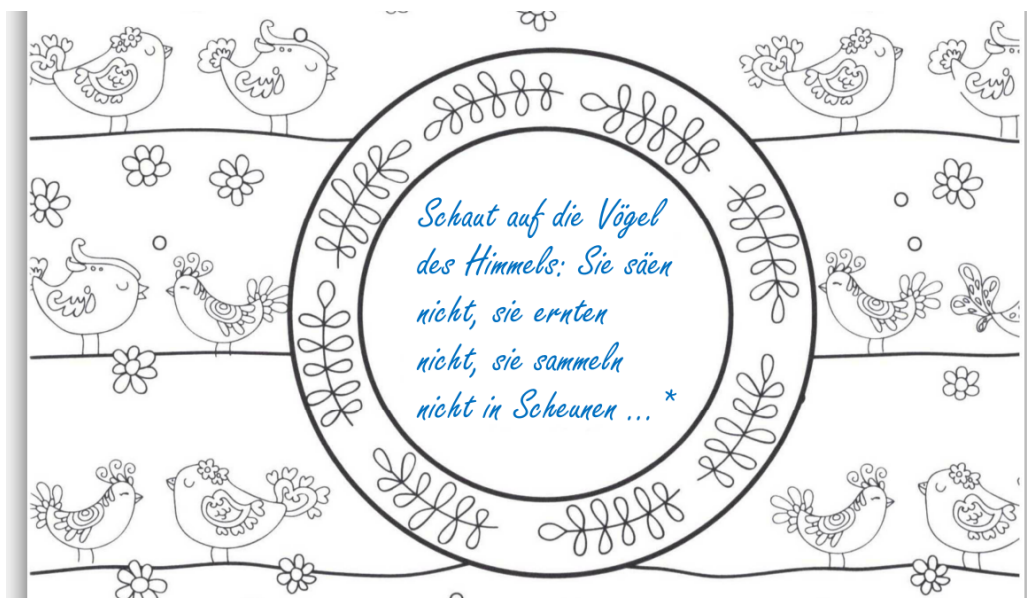 Schaut auf die Vögel
des Himmels: Sie säen
nicht, sie ernten
nicht, sie sammeln
nicht in Scheunen ... *